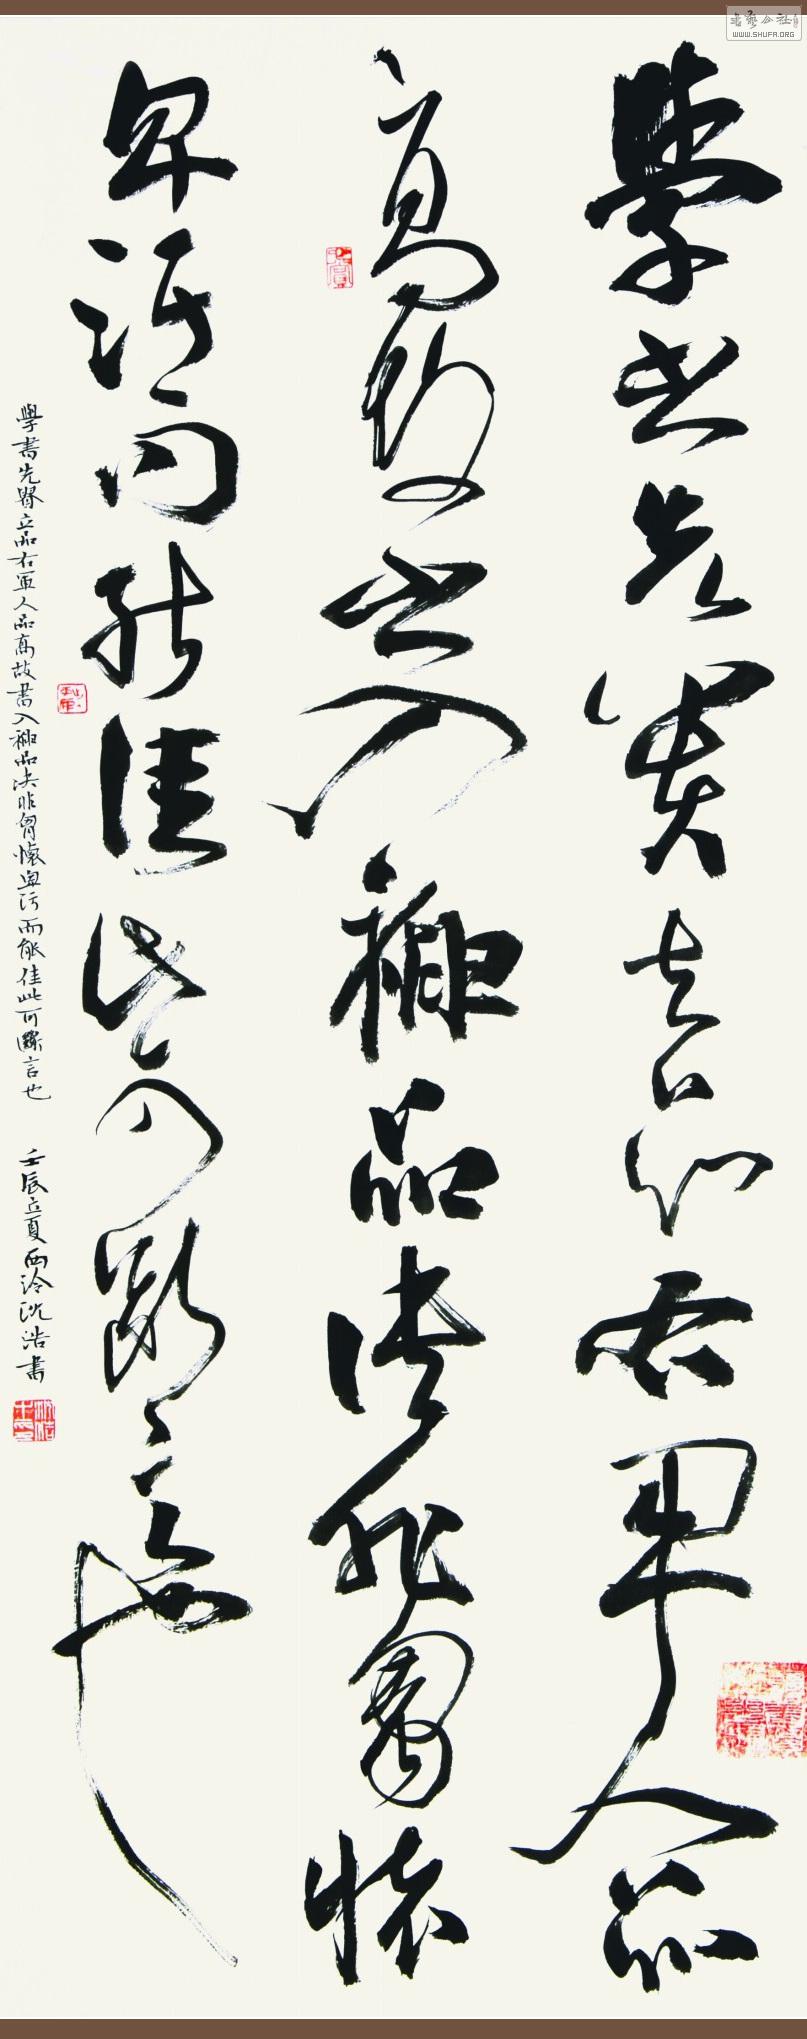 學書先貴立品右軍人品
高故書入神品决非胷懷
卑污而能佳此可斷言也
學書先貴立品右軍人品高故書入神品决非胷懷卑污而能佳此可斷言也 壬辰立夏西泠沈浩書
書藝公社
WWW.SHUFA.ORG